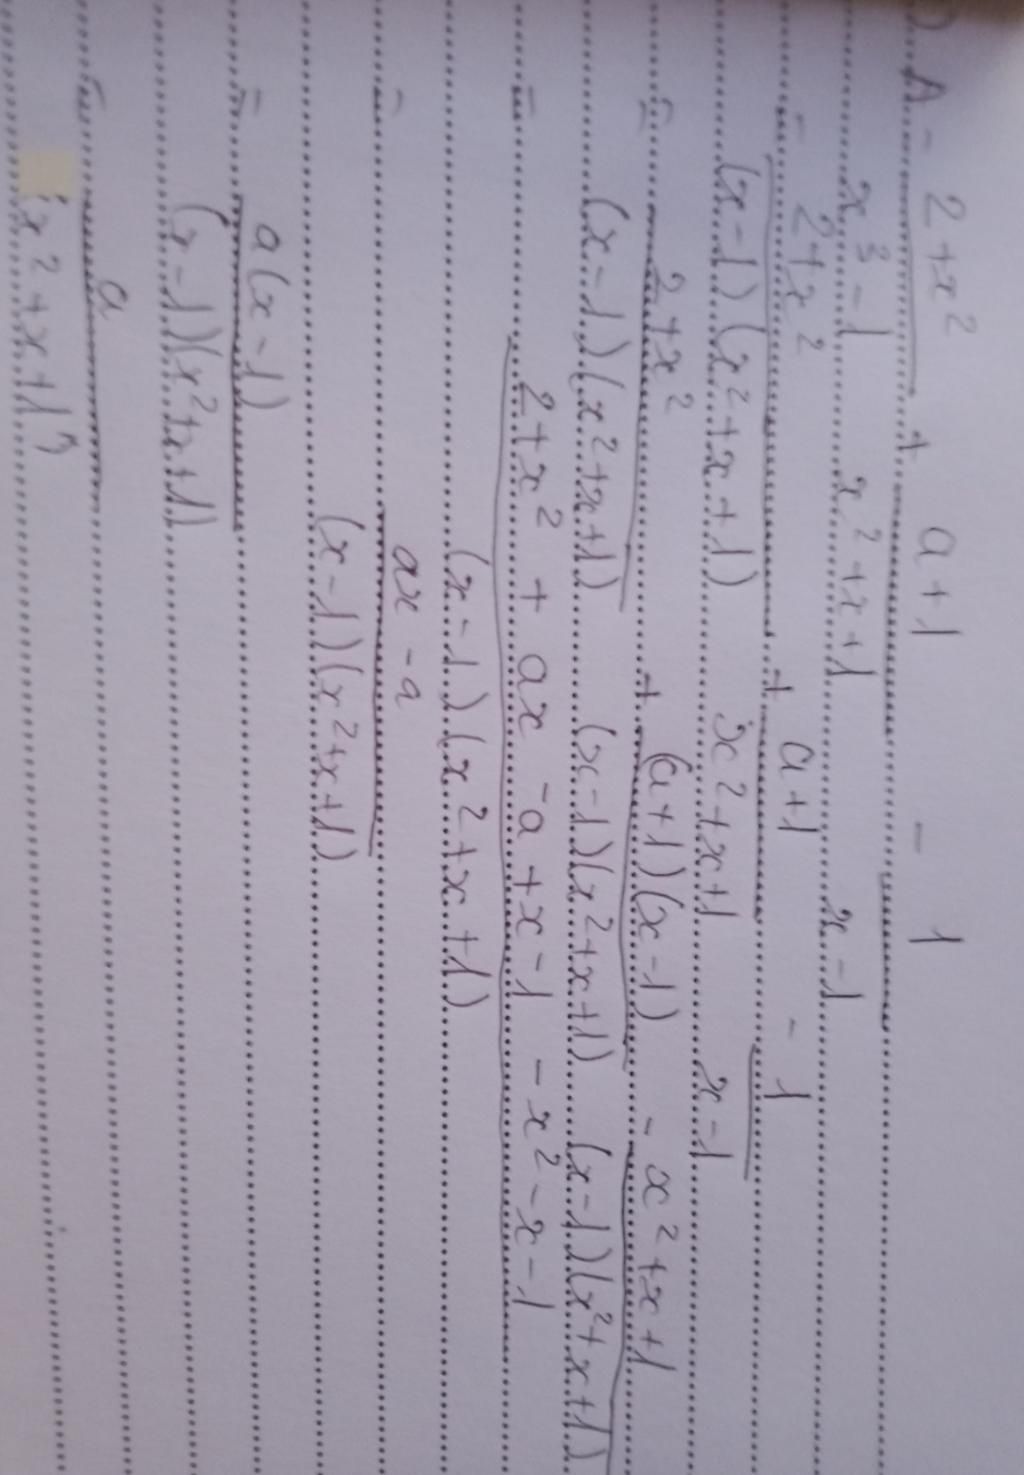 A = 2+x² / x³-1 + a+1 / x²+x+1 - 1 / x-1
= 2+x² / (x-1)(x²+x+1) + a+1 / x²+x+1 - 1 / x-1
= 2+x² / (x-1)(x²+x+1) + (a+1)(x-1) / (x-1)(x²+x+1) - x²+x+1 / (x-1)(x²+x+1)
= 2+x² + ax -a +x-1 -x²-x-1 / (x-1)(x²+x+1)
= ax -a / (x-1)(x²+x+1)
= a(x-1) / (x-1)(x²+x+1)
= a / x²+x+1